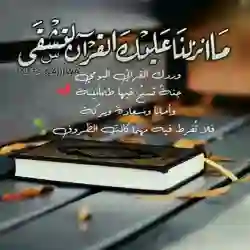 مَا أَنزَلْنَا عَلَيْكَ الْقُرْآنَ لِتَشْقَى
وردك القرآني اليومي
جنة تسبح فيها طمأنينة
وأمانا وسعادة وبركة
فلا تفرط فيه مهما كانت الظروف